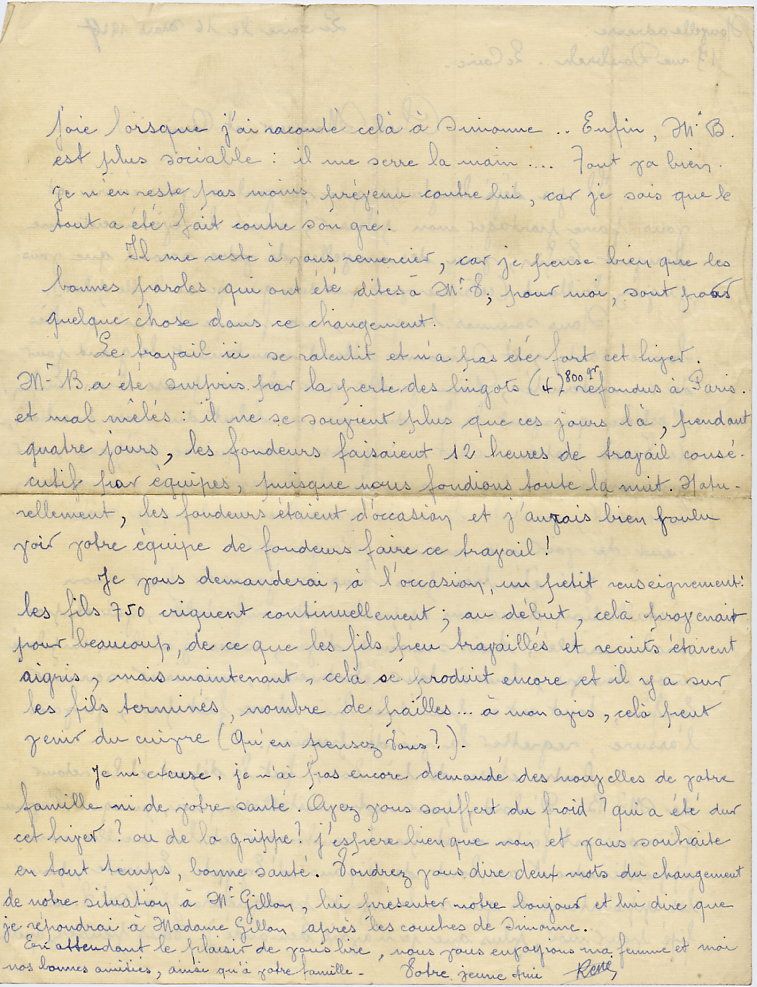 joie lorsque j'ai raconté celà à Simonne .. Enfin, Mr B.
est plus sociable : il me serre la main .... Tout va bien.
Je n'en reste pas moins prévenu contre lui, car je sais que le
tout a été fait contre son gré.
Il me reste à vous remercier, car je pense bien que les
bonnes paroles qui ont été dites à Mr S, pour moi, sont pour
quelque chose dans ce changement.
Le travail ici se ralentit et n'a pas été fort cet hiver.
Mr B a été surpris par la perte des lingots (4) 800 gr refondus à Paris.
et mal mêlés : il ne se souvient plus que ces jours là, pendant
quatre jours, les fondeurs faisaient 12 heures de travail consé-
cutif par équipes, puisque nous fondions toute la nuit. Natu-
rellement, les fondeurs étaient d'occasion et j'aurais bien voulu
voir votre équipe de fondeurs faire ce travail !
Je vous demanderai, à l'occasion, un petit renseignement:
les fils 750 criquent continuellement ; au début, celà provenait
pour beaucoup, de ce que les fils peu travaillés et recuits étaient
aigris, mais maintenant, celà se produit encore et il y a sur
les fils terminés, nombre de pailles... à mon avis, celà peut
venir du cuivre (Qu'en pensez Vous ?).
Je m'excuse, je n'ai pas encore demandé des nouvelles de votre
famille ni de votre santé. Avez vous souffert du froid ? qui a été dur
cet hiver ? ou de la grippe ? j'espère bien que non et vous souhaite
en tout temps, bonne santé. Voudrez vous dire deux mots du changement
de notre situation à Mr Gillon, lui présenter notre bonjour et lui dire que
je répondrai à Madame Gillon après les couches de Simonne.
En attendant le plaisir de vous lire, nous vous envoyions ma femme et moi
nos bonnes amitiés, ainsi qu'à votre famille - Votre jeune Ami René,